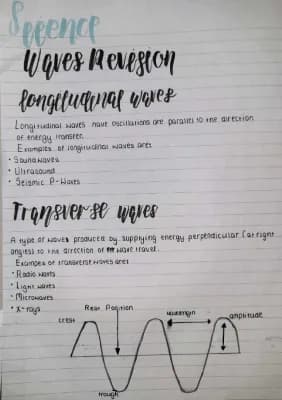 Science
Waves Revision
longitudinal waves
Longitudinal waves have oscillations are parallel to the direction
of energy transfer.
Examples of longitudinal waves are:
• Sound waves
• Ultrasound
• Seismic P-Waves
Transverse waves
A type of waves produced by supplying energy perpendicular (at right
angles) to the direction of wave travel.
Examples of transverse waves are:
• Radio waves
• Light waves
• Microwaves
• X-rays
Rest Position
crest
amplitude
trough